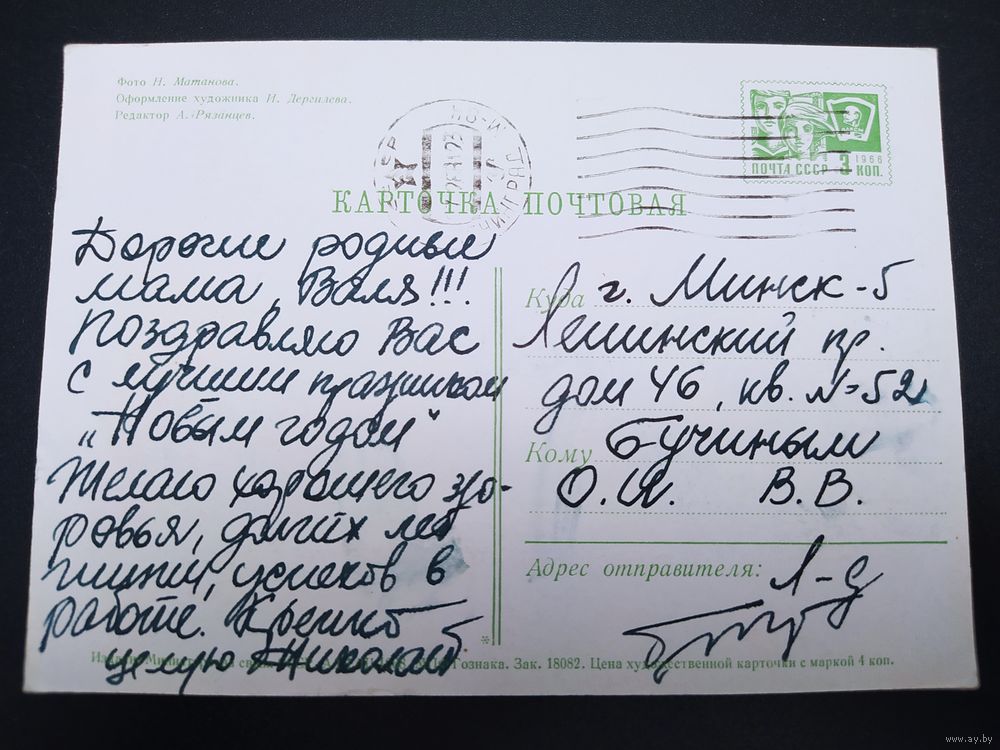 Фото Н. Матанова.
Оформление художника И. Дергилева.
Редактор А. Рязанцев.
1966
ПОЧТА СССР 3 КОП.
КАРТОЧКА ПОЧТОВАЯ
Дорогие родные
мама, Валя!!!
Поздравляю Вас
с лучшим праздником
„Новым годом“
Желаю хорошего здо-
ровья, долгих лет
жизни, успехов в
работе. Крепко
целую Николай
Куда г. Минск-5
Ленинский пр.
дом 46, кв. № 52
Кому Бучиным
О.Я. В.В.
Адрес отправителя: Л-д
*
Гознака. Зак. 18082. Цена художественной карточки с маркой 4 коп.
www.ay.by